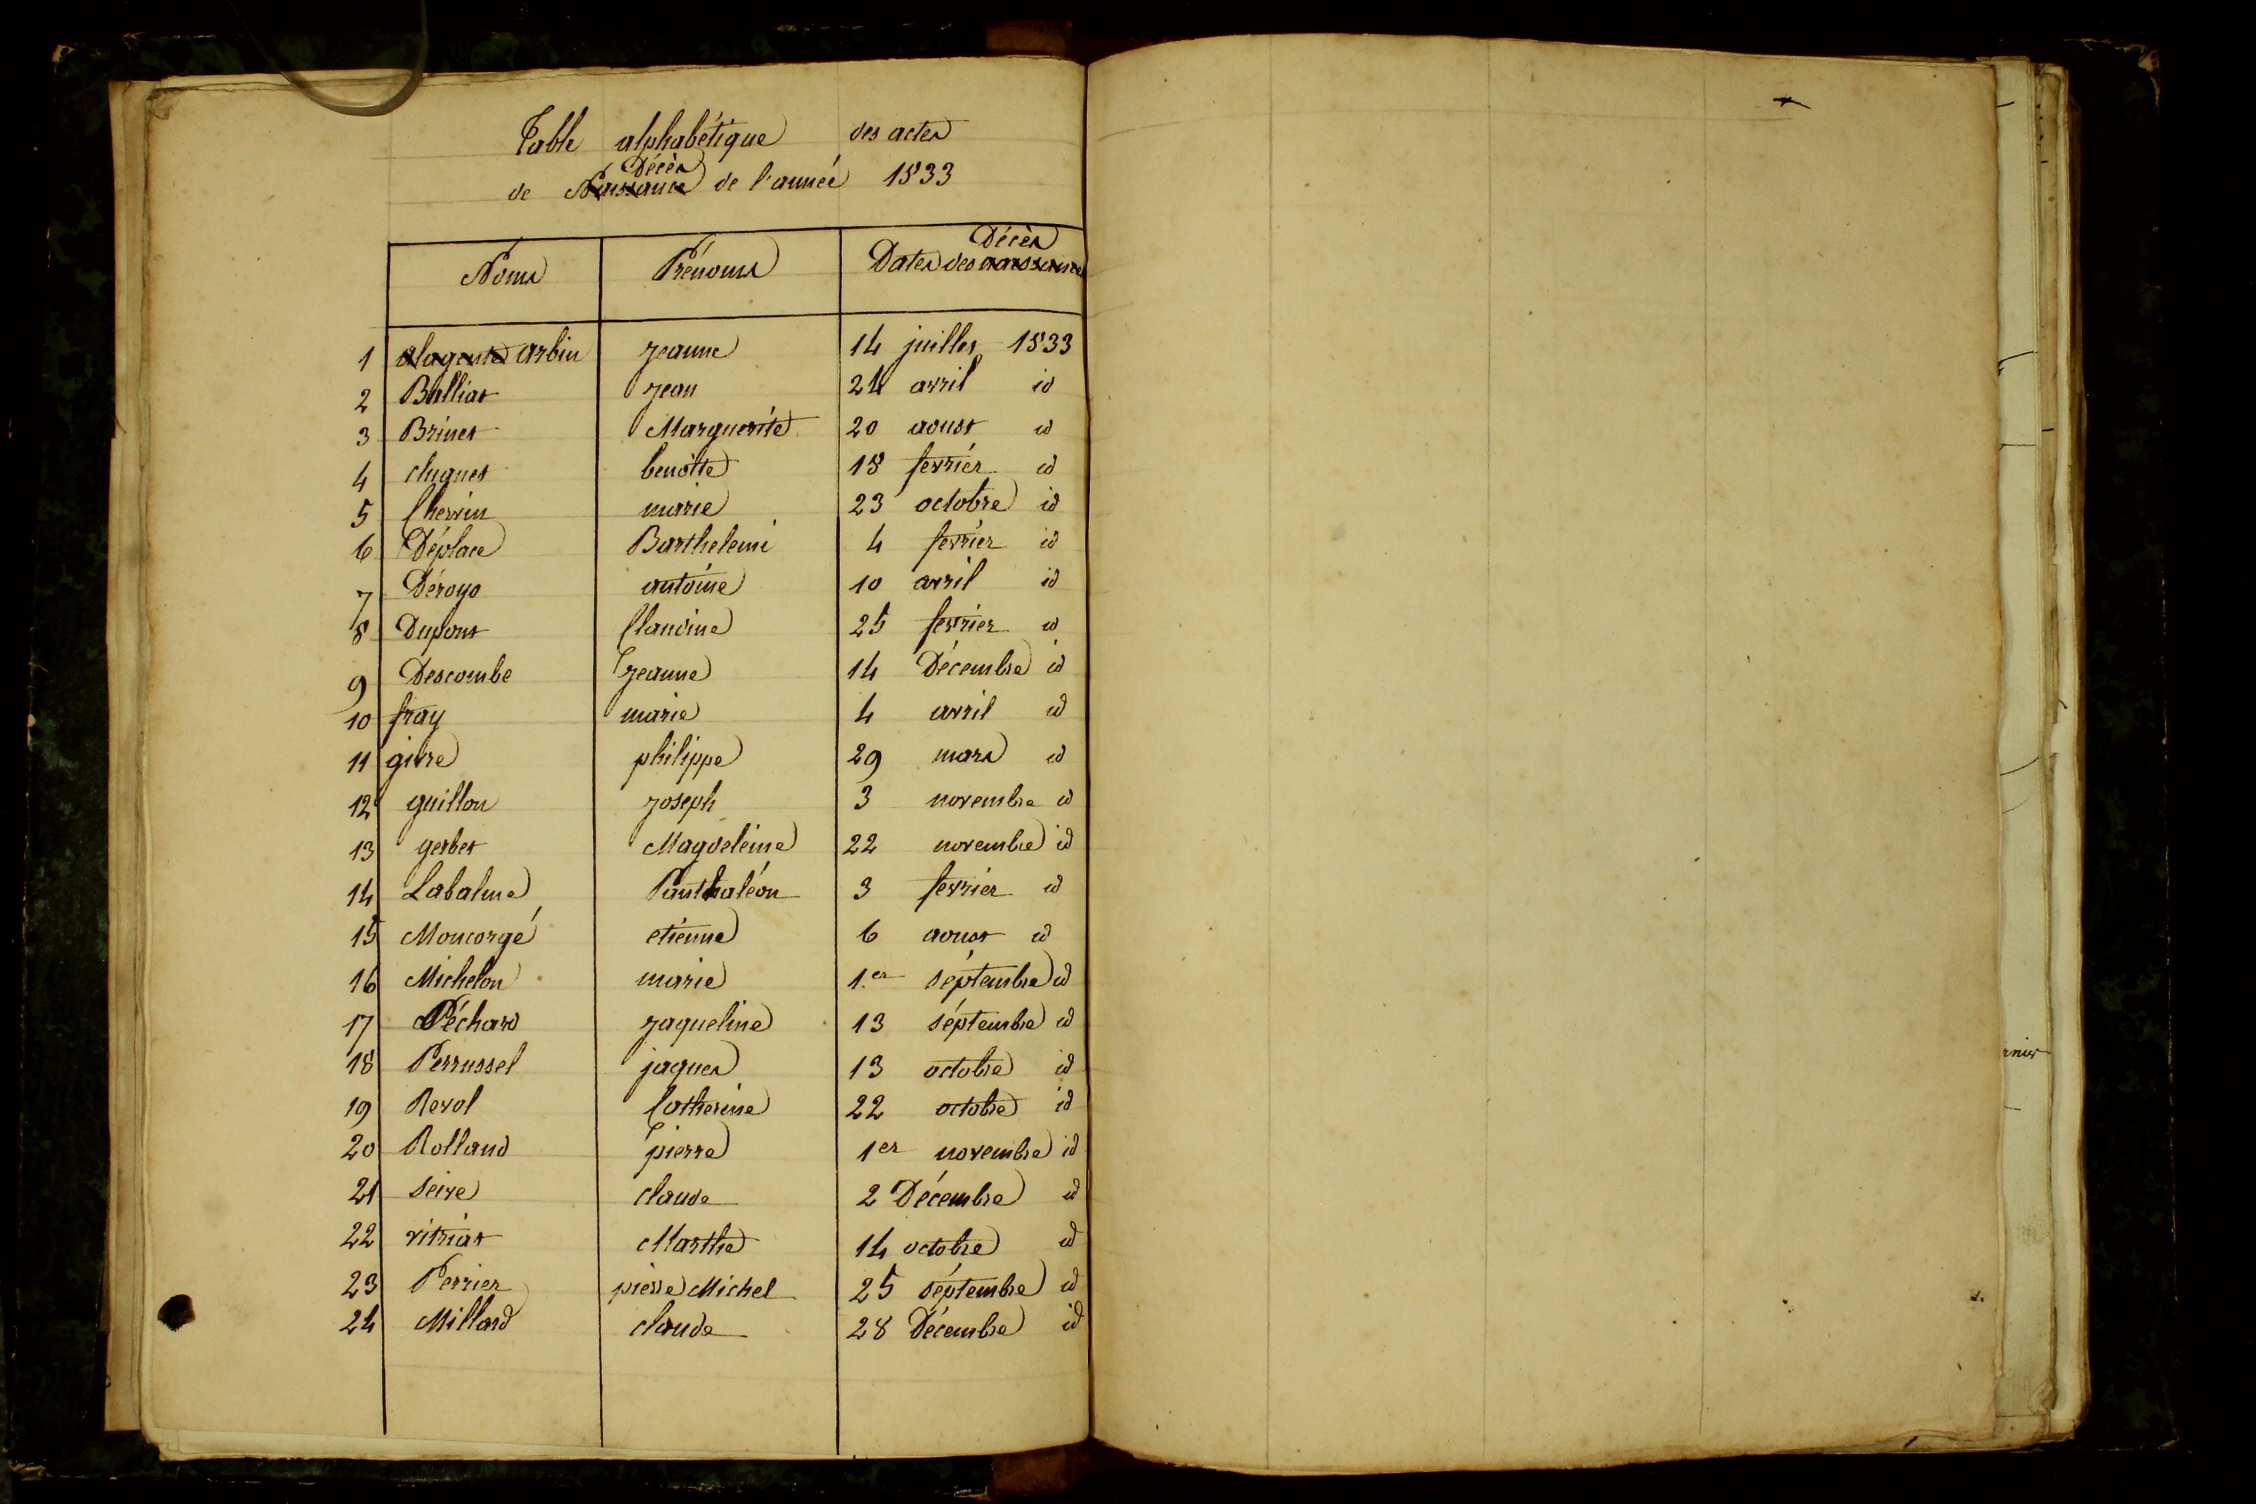 Table alphabétique des actes
Décès
de Naissance de l'année 1833
Noms Prénoms Dates des naissances
Décès
1 arbin jeanne 14 juillet 1833
2 Balliat jean 24 avril id
3 Brinet Marguerite 20 aoust id
4 chuguet benoîte 18 fevriér id
5 Chervin marie 23 octobre id
6 Déplace Barthelemi 4 février id
7 Déroyo antoine 10 avril id
8 Dupont Claudine 25 février id
9 Descombe Jeanne 14 Décembre id
10 fray marie 4 avril id
11 givre philippe 29 mars id
12 guillon joseph 3 novembre id
13 gerbet Magdeleine 22 novembre id
14 Labalme Panthaléon 3 fevrier id
15 Moncorgé etienne 6 aoust id
16 Michelon marie 1.er séptembre id
17 Péchard jaqueline 13 séptembre id
18 Perrussel jaques 13 octobre id
19 Revol Catherine 22 octobre id
20 Rolland pierre 1er novembre id
21 seive claude 2 Décembre id
22 vitriat Marthe 14 octobre id
23 Perrier pierre Michel 25 séptembre id
24 Millard claude 28 Décembre id